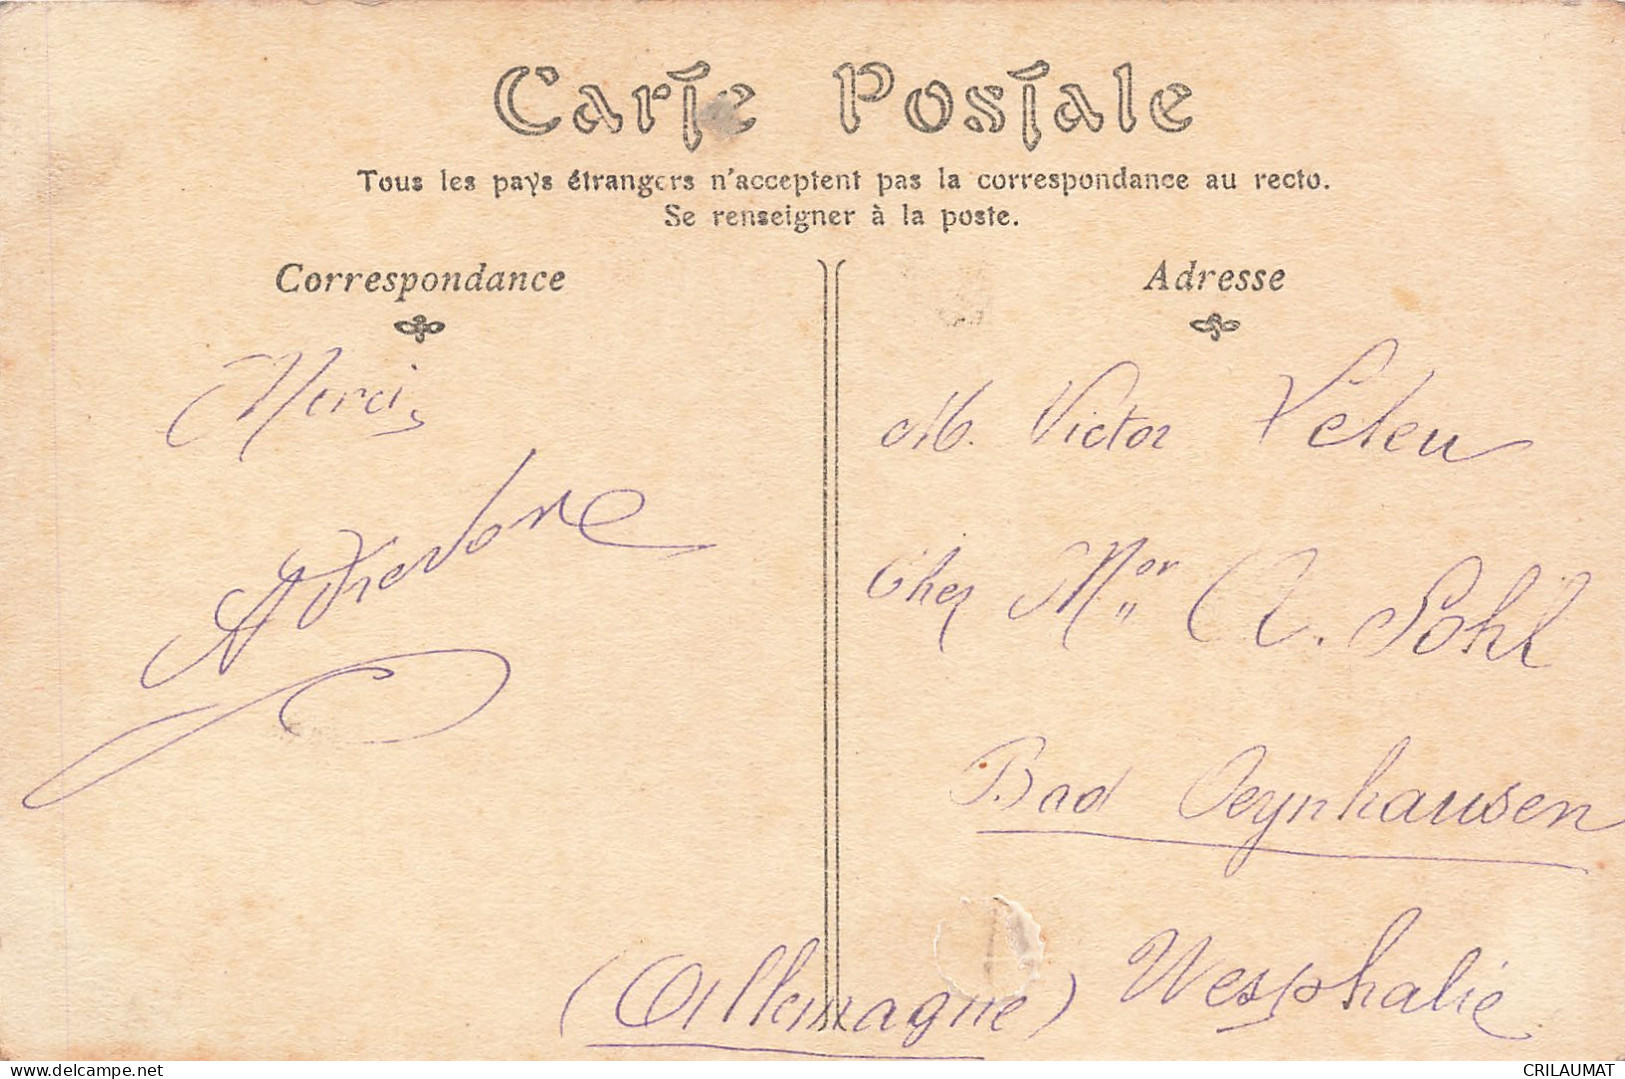 Carte Postale
Tous les pays étrangers n'acceptent pas la correspondance au recto.
Se renseigner à la poste.
Correspondance
Adresse
Merci,
M. Victor
Chez Mor A. Pohl
Bad Oeynhausen
Wesphalie
(Allemagne)
delcampe.net
CRILAUMAT